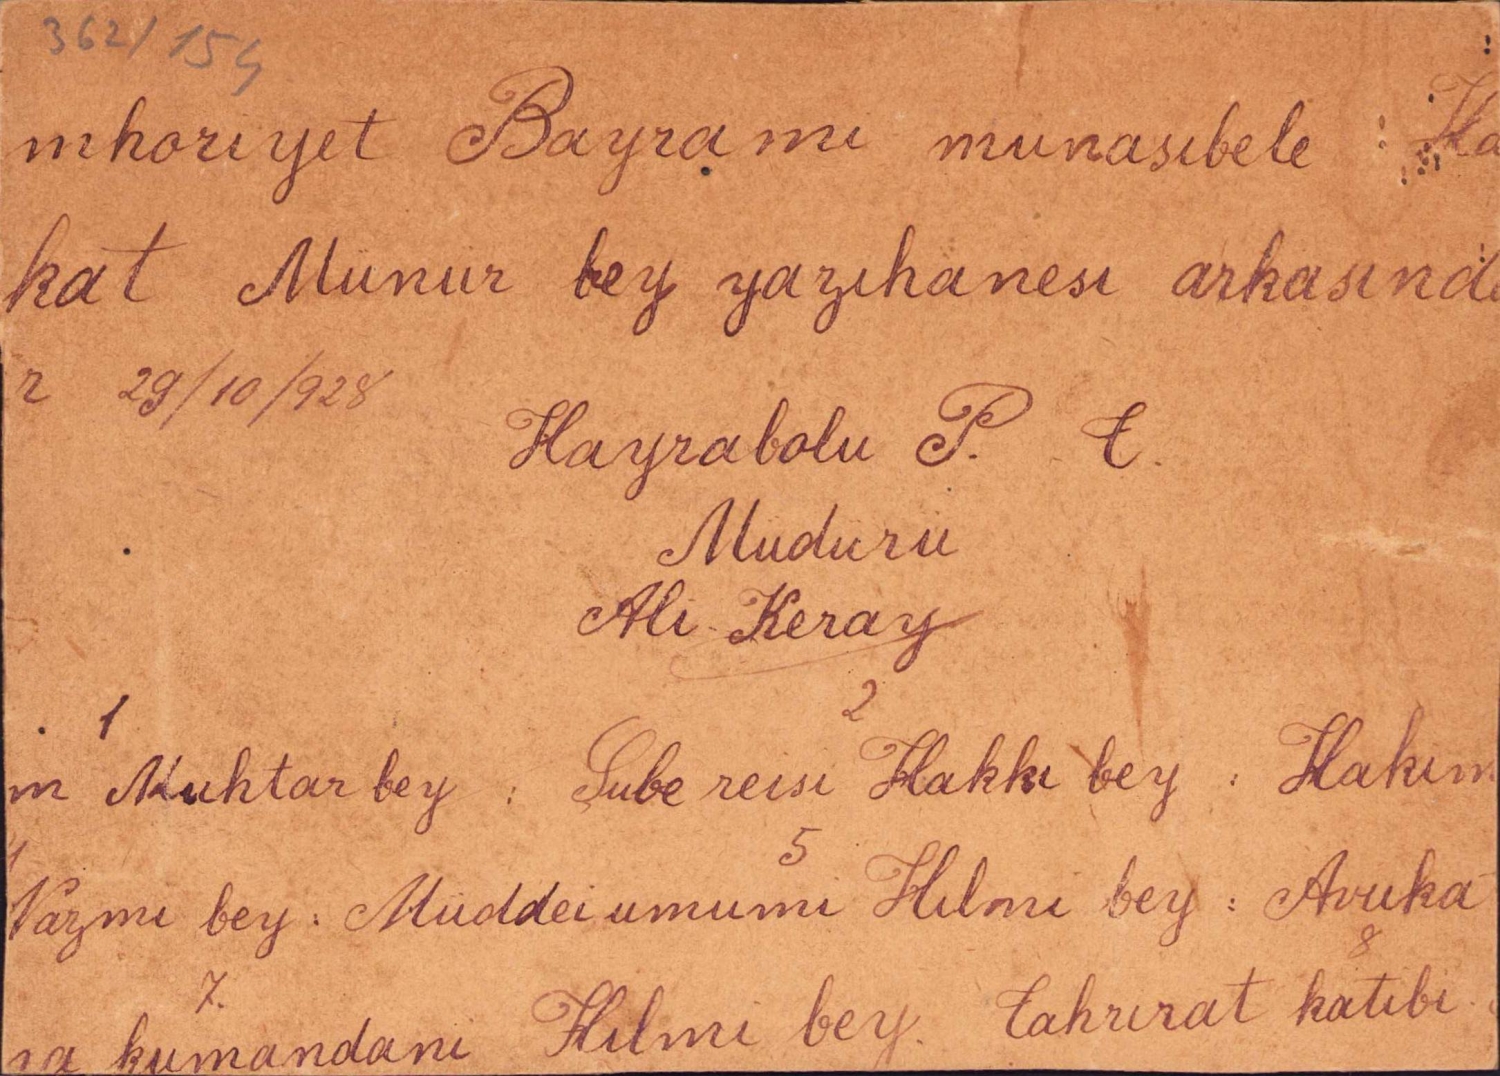 362/154
mhoriyet Bayramı munasıbele : Ha
kat Münür bey yazıhanesi arkasında
r 29/10/928
Hayrabolu P. T.
Müdürü
Ali Keray
1 2
m Muhtar bey : Şube reisi Hakkı bey : Hakim
5
Nazmı bey : Müddei umumi Hilmi bey : Avuka
7. 8
na kumandanı Hılmi bey. Tahrırat katıbi